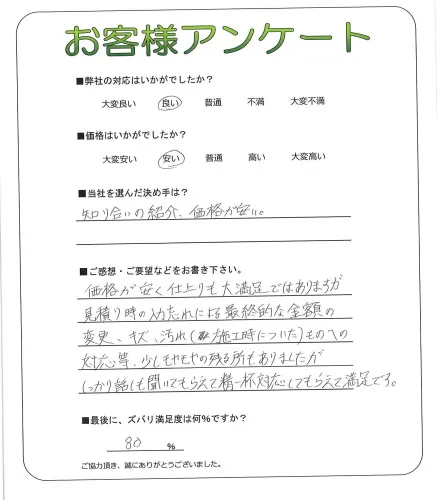 お客様アンケート
■弊社の対応はいかがでしたか?
大変良い 良い 普通 不満 大変不満
■価格はいかがでしたか?
大変安い 安い 普通 高い 大変高い
■当社を選んだ決め手は?
知り合いの紹介、価格が安い。
■ご感想・ご要望などをお書き下さい。
価格が安く仕上りも大満足ではありますが
見積り時の入力忘れによる最終的な金額の
変更、キズ、汚れ(施工時についた)ものへの
対応等、少しもやもやの残る所もありましたが
しっかり話しも聞いてもらえて精一杯対応してもらえて満足です。
■最後に、ズバリ満足度は何%ですか?
80 %
ご協力頂き、誠にありがとうございました。